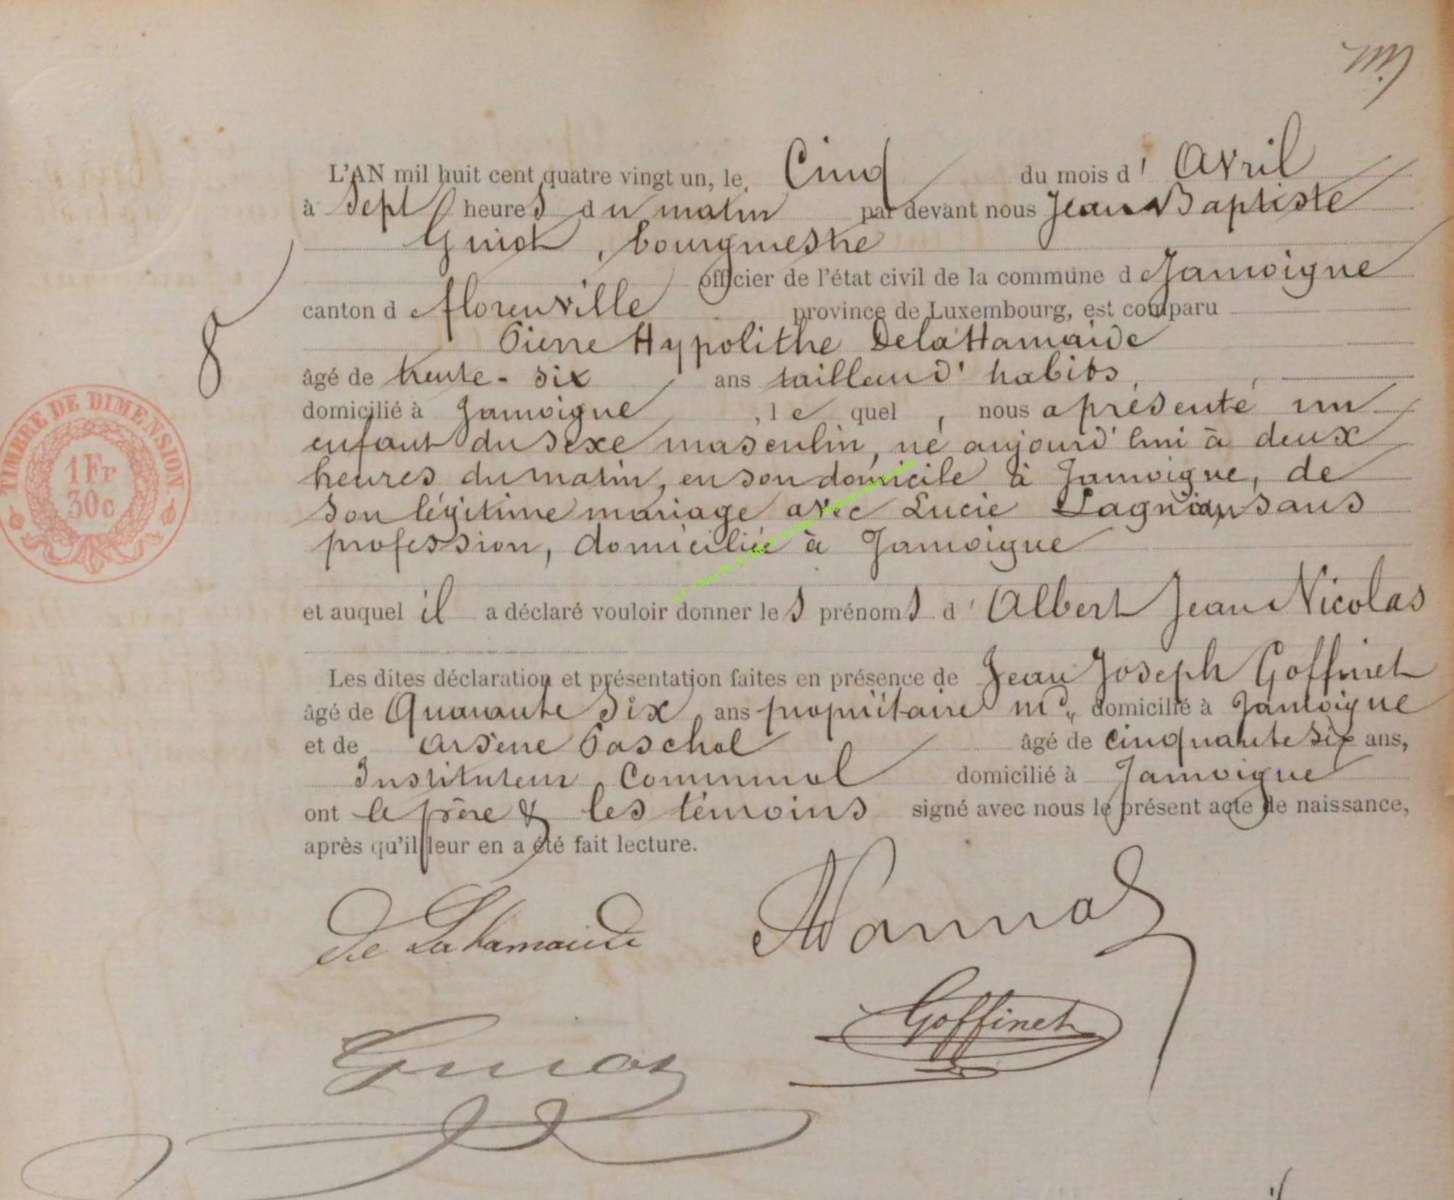 L'AN mil huit cent quatre vingt un, le Cinq du mois d' Avril
à Sept heures du matin par devant nous Jean Baptiste
Guiot, bourgmestre
officier de l'état civil de la commune de Jamoigne
canton de florenville province de Luxembourg, est comparu
Pierre Hypolithe Delahamaide
âgé de trente-six ans tailleur d'habits,
domicilié à Jamoigne, lequel, nous a présenté un
enfant du sexe masculin, né aujourd'hui à deux
heures du matin, en son domicile à Jamoigne, de
son légitime mariage avec Lucie sans
profession, domiciliée à Jamoigne
et auquel il a déclaré vouloir donner les prénoms d' Albert Jean Nicolas
Les dites déclaration et présentation faites en présence de Jean Joseph Goffinet
âgé de Quarante Six ans propriétaire domicilié à Jamoigne
et de Arsène Paschal âgé de cinquante six ans,
Instituteur Communal domicilié à Jamoigne
ont le père & les témoins signé avec nous le présent acte de naissance,
après qu'il leur en a été fait lecture.
8
TIMBRE DE DIMENSION
1Fr
30c
De Lahamaide
Goffinet
Guiot